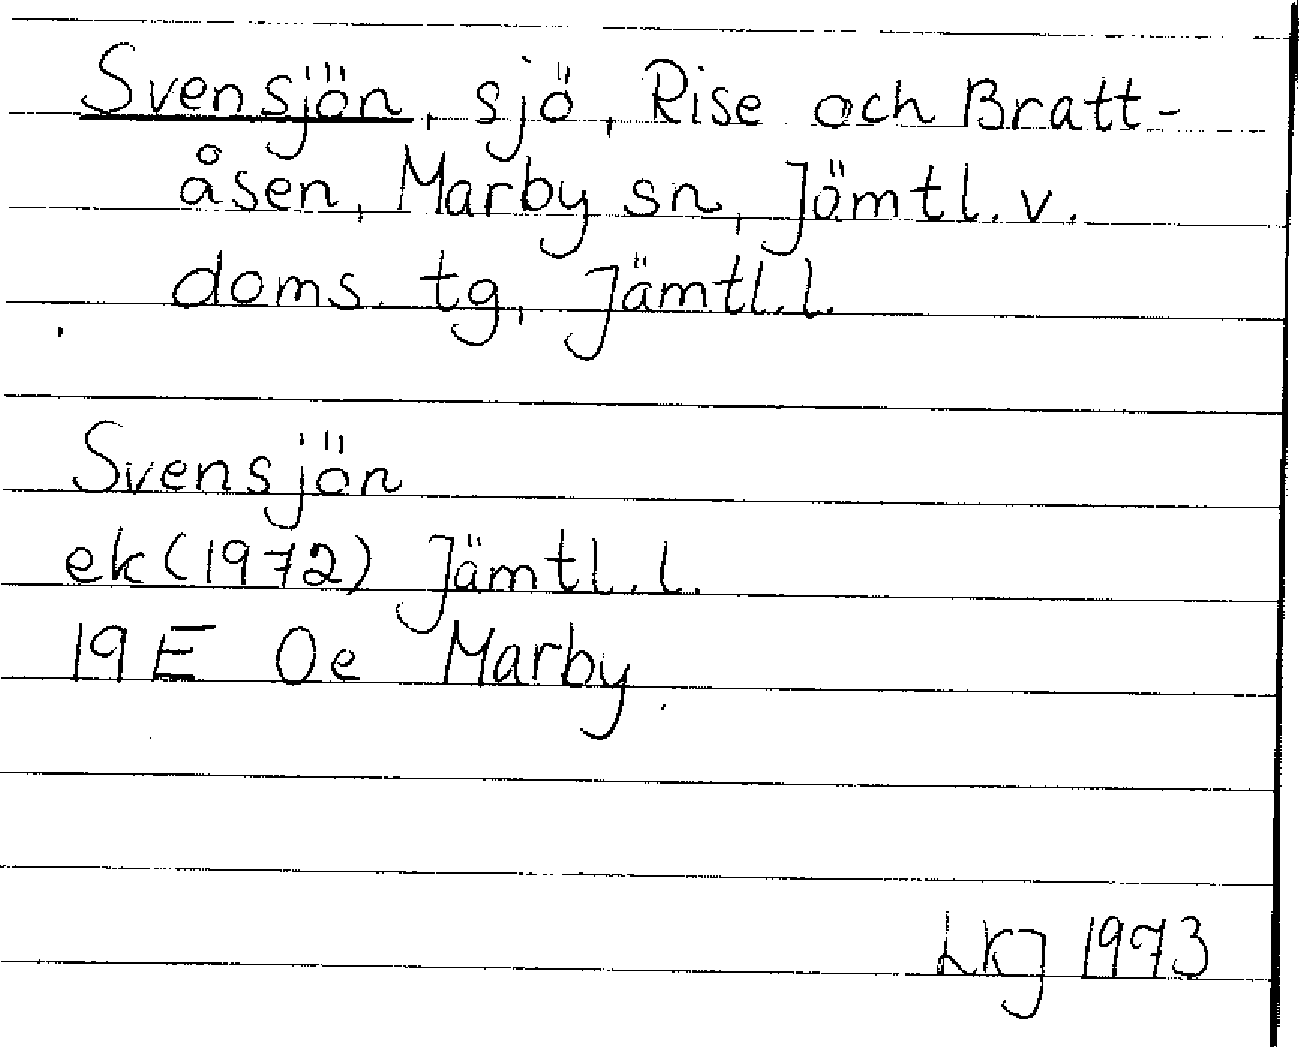 Svensjön, sjö, Rise och Bratt-
åsen, Marby sn, Jämtl. v.
doms. tg, Jämtl.l.
Svensjön
ek (1972) Jämtl. l.
19E 0e Marby
LKJ 1973